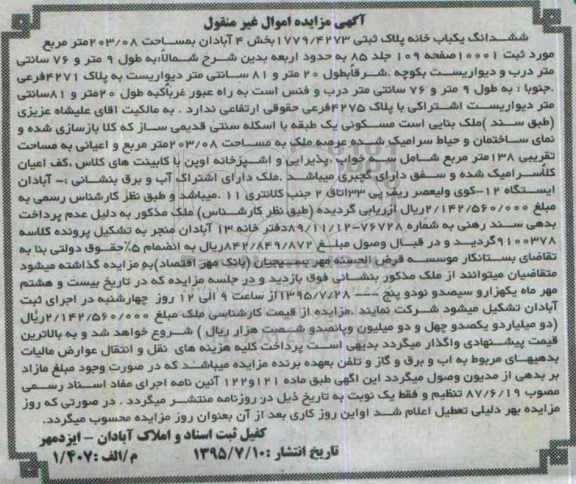 آگهی مزایده اموال غیر منقول
ششدانگ یکباب خانه پلاک ثبتی ۱۷۷۹/۴۲۷۳بخش ۴ آبادان بمساحت ۲۰۳/۰۸متر مربع
مورد ثبت ۱۰۰۰۱صفحه ۱۰۹ جلد ۸۵ به حدود اربعه بدین شرح شمالاً:به طول ۹ متر و ۷۶ سانتی
متر درب و دیواریست بکوچه .شرقاًبطول ۲۰ متر و ۸۱ سانتی متر دیواریست به پلاک ۴۲۷۱فرعی
.جنوبا : به طول ۹ متر و ۷۶ سانتی متر درب و فنس است به راه عبور غرباًبکیه طول ۲۰متر و ۸۱سانتی
متر دیواریست اشتراکی با پلاک ۴۲۷۵فرعی حقوقی ارتفاعی ندارد . به مالکیت اقای علیشاه عزیزی
(طبق سند )ملک بنایی است مسکونی یک طبقه با اسکله سنتی قدیمی ساز که کلا بازسازی شده و
نمای ساختمان و حیاط سرامیک شده عرصه ملک به مساحت ۲۰۳/۰۸متر مربع و اعیانی به مساحت
تقریبی ۱۳۸متر مربع شامل سه خواب ،پذیرایی و اشپزخانه اوپن با کابینت های کلاس ،کف اعیان
کلاًسرامیک شده و سقف دارای گچبری میباشد .ملک دارای اشتراک آب و برق بنشانی :- آبادان
ایستگاه ۱۲-کوی ولیعصر ریف پی ۳۳اتاق ۲ جنب کلانتری ۱۱ .میباشد و طبق نظر کارشناس رسمی به
مبلغ ۲/۱۴۲/۵۶۰/۰۰۰ریال ارزیابی گردیده (طبق نظر کارشناس) ملک مذکور به دلیل عدم پرداخت
بدهی سند رهنی به شماره ۷۶۷۲۸-۸۹/۱۱/۱۲دفتر خانه ۱۳ آبادان منجر به تشکیل پرونده کلاسه
۹۱۰۰۳۷۸گردید و در قبال وصول مبلغ ۸۴۲/۸۴۹/۸۷۲ریال به انضمام ۵٪حقوق دولتی بنا به
تقاضای بستانکار موسسه قرض الحسنه مهر بسیجیان (بانک مهر اقتصاد)به مزایده گذاشته میشود
متقاضیان میتوانند از ملک مذکور بنشانی فوق بازدید و در جلسه مزایده که در تاریخ بیست و هشتم
مهر ماه یکهزارو سیصدو نودو پنج --- ۱۳۹۵/۷/۲۸از ساعت ۹ الی ۱۲ روز چهارشنبه در اجرای ثبت
آبادان تشکیل میشود شرکت نمایند .مزایده از قیمت کارشناسی ملک مبلغ ۲/۱۴۲/۵۶۰/۰۰۰ریال
(دو میلیاردو یکصدو چهل و دو میلیون وپانصدو شصت هزار ریال ) شروع خواهد شد و به بالاترین
قیمت پیشنهادی واگذار میگردد بدیهی است پرداخت کلیه هزینه های نقل و انتقال عوارض مالیات
بدهیهای مربوط به اب و برق و گاز و تلفن بعهده برنده مزایده میباشد که در صورت وجود مبلغ مازاد
بر بدهی از مدیون وصول میگردد این اگهی طبق ماده ۱۲۱و۱۲۲ آئین نامه اجرای مفاد اسناد رسمی
مصوب ۸۷/۶/۱۹ تنظیم و فقط یک نوبت به تاریخ ذیل در روزنامه منتشر میگردد . در صورتی که روز
مزایده بهر دلیلی تعطیل اعلام شد اواین روز کاری بعد از آن بعنوان روز مزایده محسوب میگردد.
کفیل ثبت اسناد و املاک آبادان – ایزدمهر
تاریخ انتشار :۱۳۹۵/۷/۱۰ م/الف :۱/۴۰۷